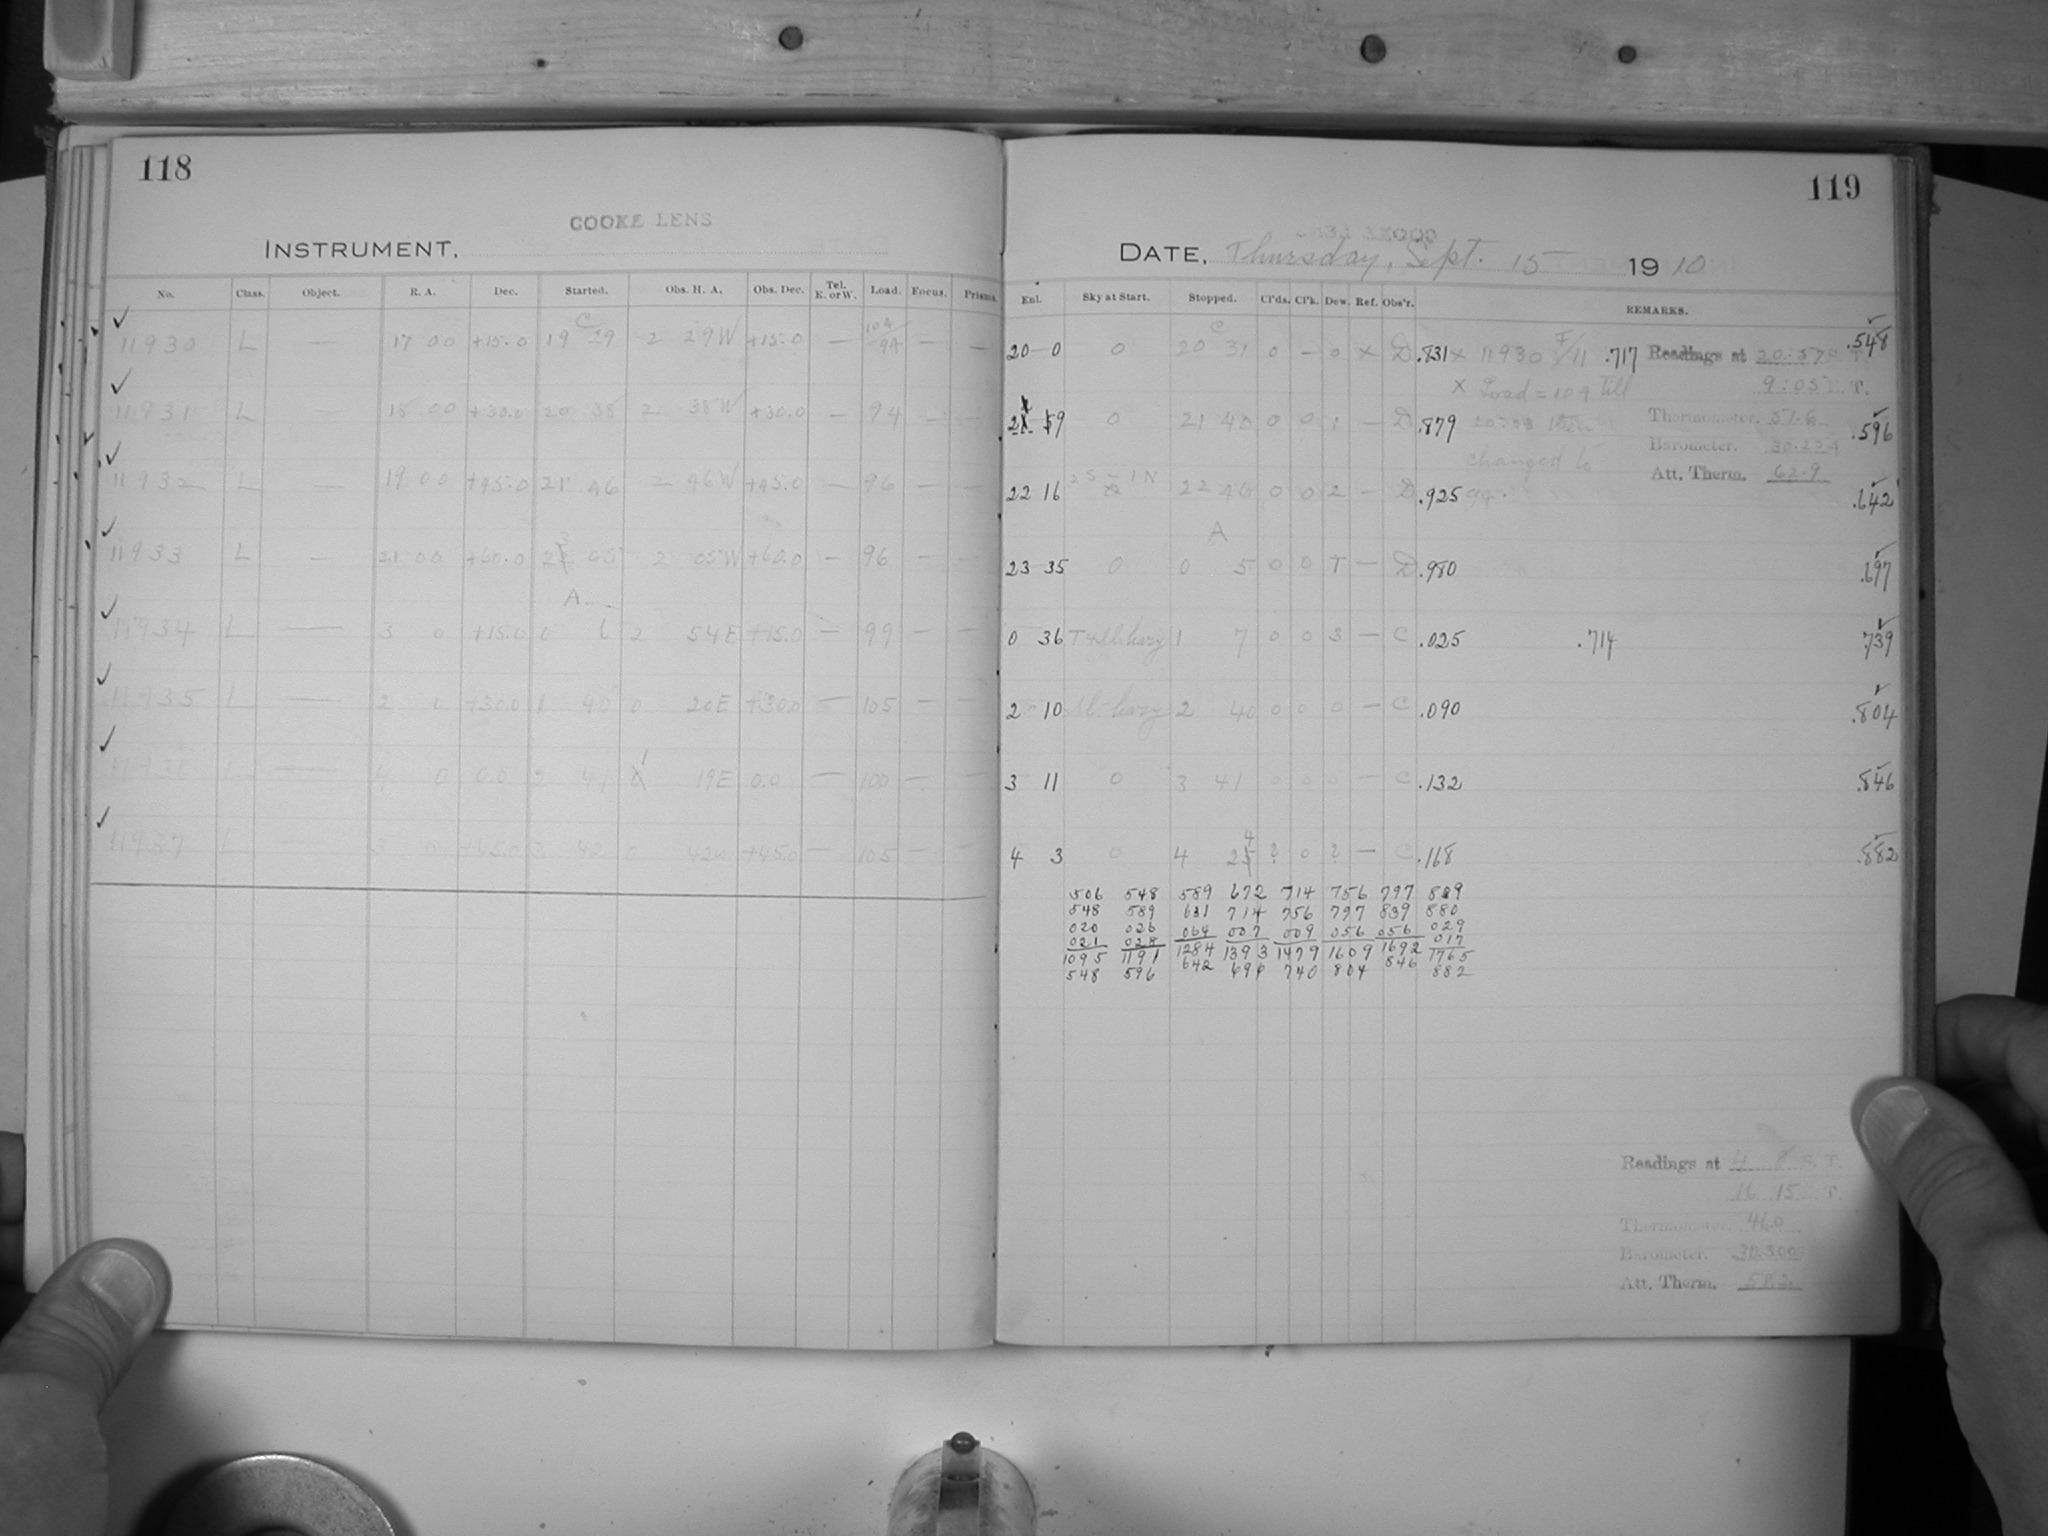 118
COOKE LENS
INSTRUMENT,
No. Class. Object. R. A. Dec. Started. Obs. H. A. Obs. Dec. Tel. E. or W. Load. Focus. Prisms.
11930 L — 17 00 +15.0 19 29 2 29W +15.0 — —
11931 L — 18 00 +30.0 20 38 2 38W +30.0 — 94 — —
11932 L — 19 00 +45.0 21 46 2 46W +45.0 — 96 — —
11933 L — 21 00 +60.0 05 2 05W +60.0 — 96 — —
A
11934 L — 3 0 +15.0 0 6 2 54E +15.0 — 99 — —
11935 L — 2 0 +30.0 1 40 0 20E +30.0 — 105 — —
11936 L — 4 0 0.0 2 41 1 19E 0.0 — 100 — —
11937 L — 3 0 +45.0 3 42 0 42W +45.0 — 105 — —
119
DATE, Thursday, Sept. 15 1910
Enl. Sky at Start. Stopped. Cl'ds. Cl'k. Dew. Ref. Obs'r. REMARKS.
20 0 0 20 31 0 — 0 × D .831 × 11930 F/11 .717 .548
× Load = 109 till
59 0 21 40 0 0 1 — D .879 then .596
changed to
22 16 22 46 0 0 2 — D .925 94. .642
A
23 35 0 0 5 0 0 T — D .980 .697
0 36 T & Sl. hazy 1 7 0 0 3 — C .025 .714 .739
2 10 Sl. hazy 2 40 0 0 0 — C .090 .804
3 11 0 3 41 0 0 0 — C .132 .846
4 3 0 4 ? 0 ? — C .168 .882
506 548 589 672 714 756 797 839
548 589 631 714 756 797 839 880
020 026 064 007 009 056 056 029
021 028 017
1095 1191 1284 1393 1479 1609 1692 1765
548 596 642 696 740 804 846 882
Readings at 20:57 S. T.
9:05 T.
Thermometer. 51.6
Barometer.
Att. Therm. 62.9
Readings at 4 8 S. T.
16 15 T.
Thermometer. 46.0
Barometer. 30.300
Att. Therm. 58.2